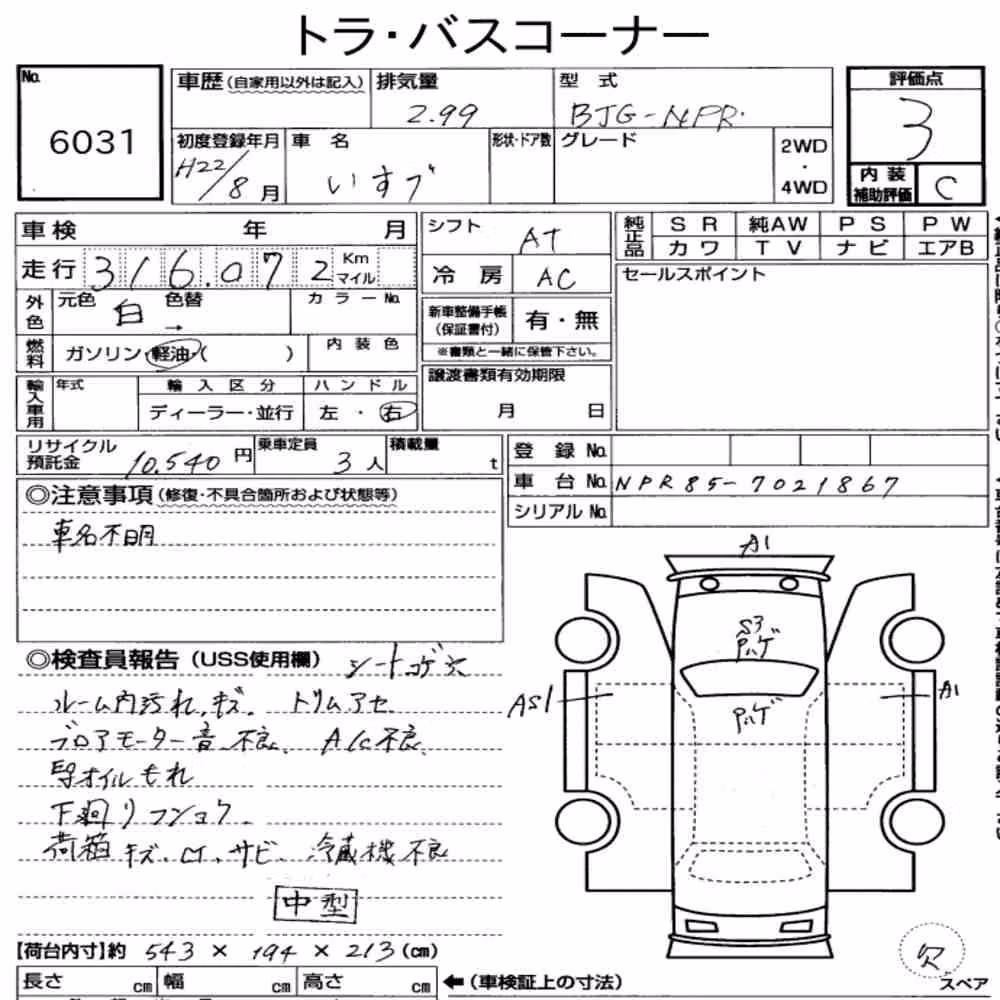 トラ・バスコーナー
No. 6031
車歴(自家用以外は記入) 排気量 2.99 型式 BJG-NPR.
評価点 3
初度登録年月 H22/8月 車名 いすゞ 形状・ドア数 グレード 2WD・4WD
内装補助評価 C
車検 年 月
走行 316.072 Km マイル
外色 元色 白 色替 → カラーNo.
燃料 ガソリン・軽油・( ) 内装色
輸入車用 年式 輸入区分 ディーラー・並行 ハンドル 左・右
シフト AT
冷房 AC
新車整備手帳(保証書付) 有・無
※書類と一緒に保管下さい。
譲渡書類有効期限 月 日
純正品 SR 純AW PS PW
カワ TV ナビ エアB
セールスポイント
リサイクル預託金 10.540円 乗車定員 3人 積載量 t
登録No.
車台No. NPR85-7021867
シリアルNo.
◎注意事項(修復・不具合箇所および状態等)
車名不明
◎検査員報告(USS使用欄) シートコゲ穴
ルーム内汚れ,キズ. トリムアセ
ブロアモーター音 不良、A/C不良、
オイルもれ
下廻りフンコク
荷箱キズ、凹、サビ、冷蔵機不良
中型
【荷台内寸】約 543 × 194 × 213 (cm)
長さ cm 幅 cm 高さ cm ←(車検証上の寸法)
A1
S3
ハゲ
ハゲ
AS1
A1
欠
スペア